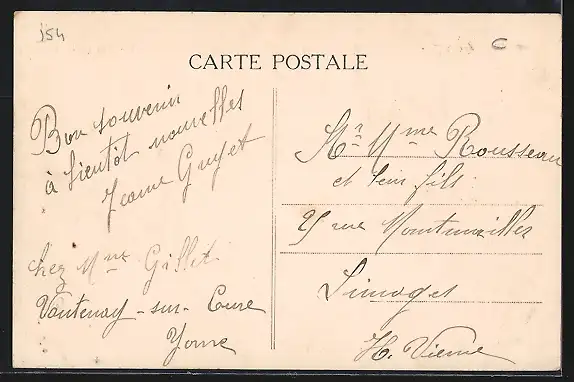 154
C
CARTE POSTALE
Bon souvenir
à bientôt nouvelles
Jeanne Guyet
chez Mme Gillet
Vantenay-sur-Cure
Yonne
Mr Mme Rousseau
et leur fils
25 rue
Limoges
H. Vienne